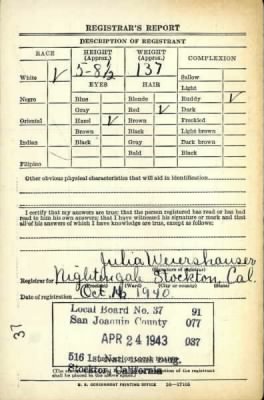 REGISTRAR'S REPORT
DESCRIPTION OF REGISTRANT
RACE HEIGHT (Approx.) WEIGHT (Approx.) COMPLEXION
White ✓ 5-8½ 137 Sallow
EYES HAIR Light
Negro Blue Blonde Ruddy ✓
Gray Red ✓ Dark
Oriental Hazel ✓ Brown Freckled
Brown Black Light brown
Indian Black Gray Dark brown
Bald Black
Filipino
Other obvious physical characteristics that will aid in identification
I certify that my answers are true; that the person registered has read or has had
read to him his own answers; that I have witnessed his signature or mark and that
all of his answers of which I have knowledge are true, except as follows:
Julia
(Signature of registrar)
Registrar for Nightengale Stockton, Cal
(Precinct) (Ward) (City or county) (State)
Date of registration Oct. 16 1940
Local Board No. 37 91
San Joaquin County 077
APR 24 1943 037
37
516 1st National Bank Bldg.
Stockton, California
of the registration
shall be placed in the above space.)
U. S. GOVERNMENT PRINTING OFFICE 16-17105